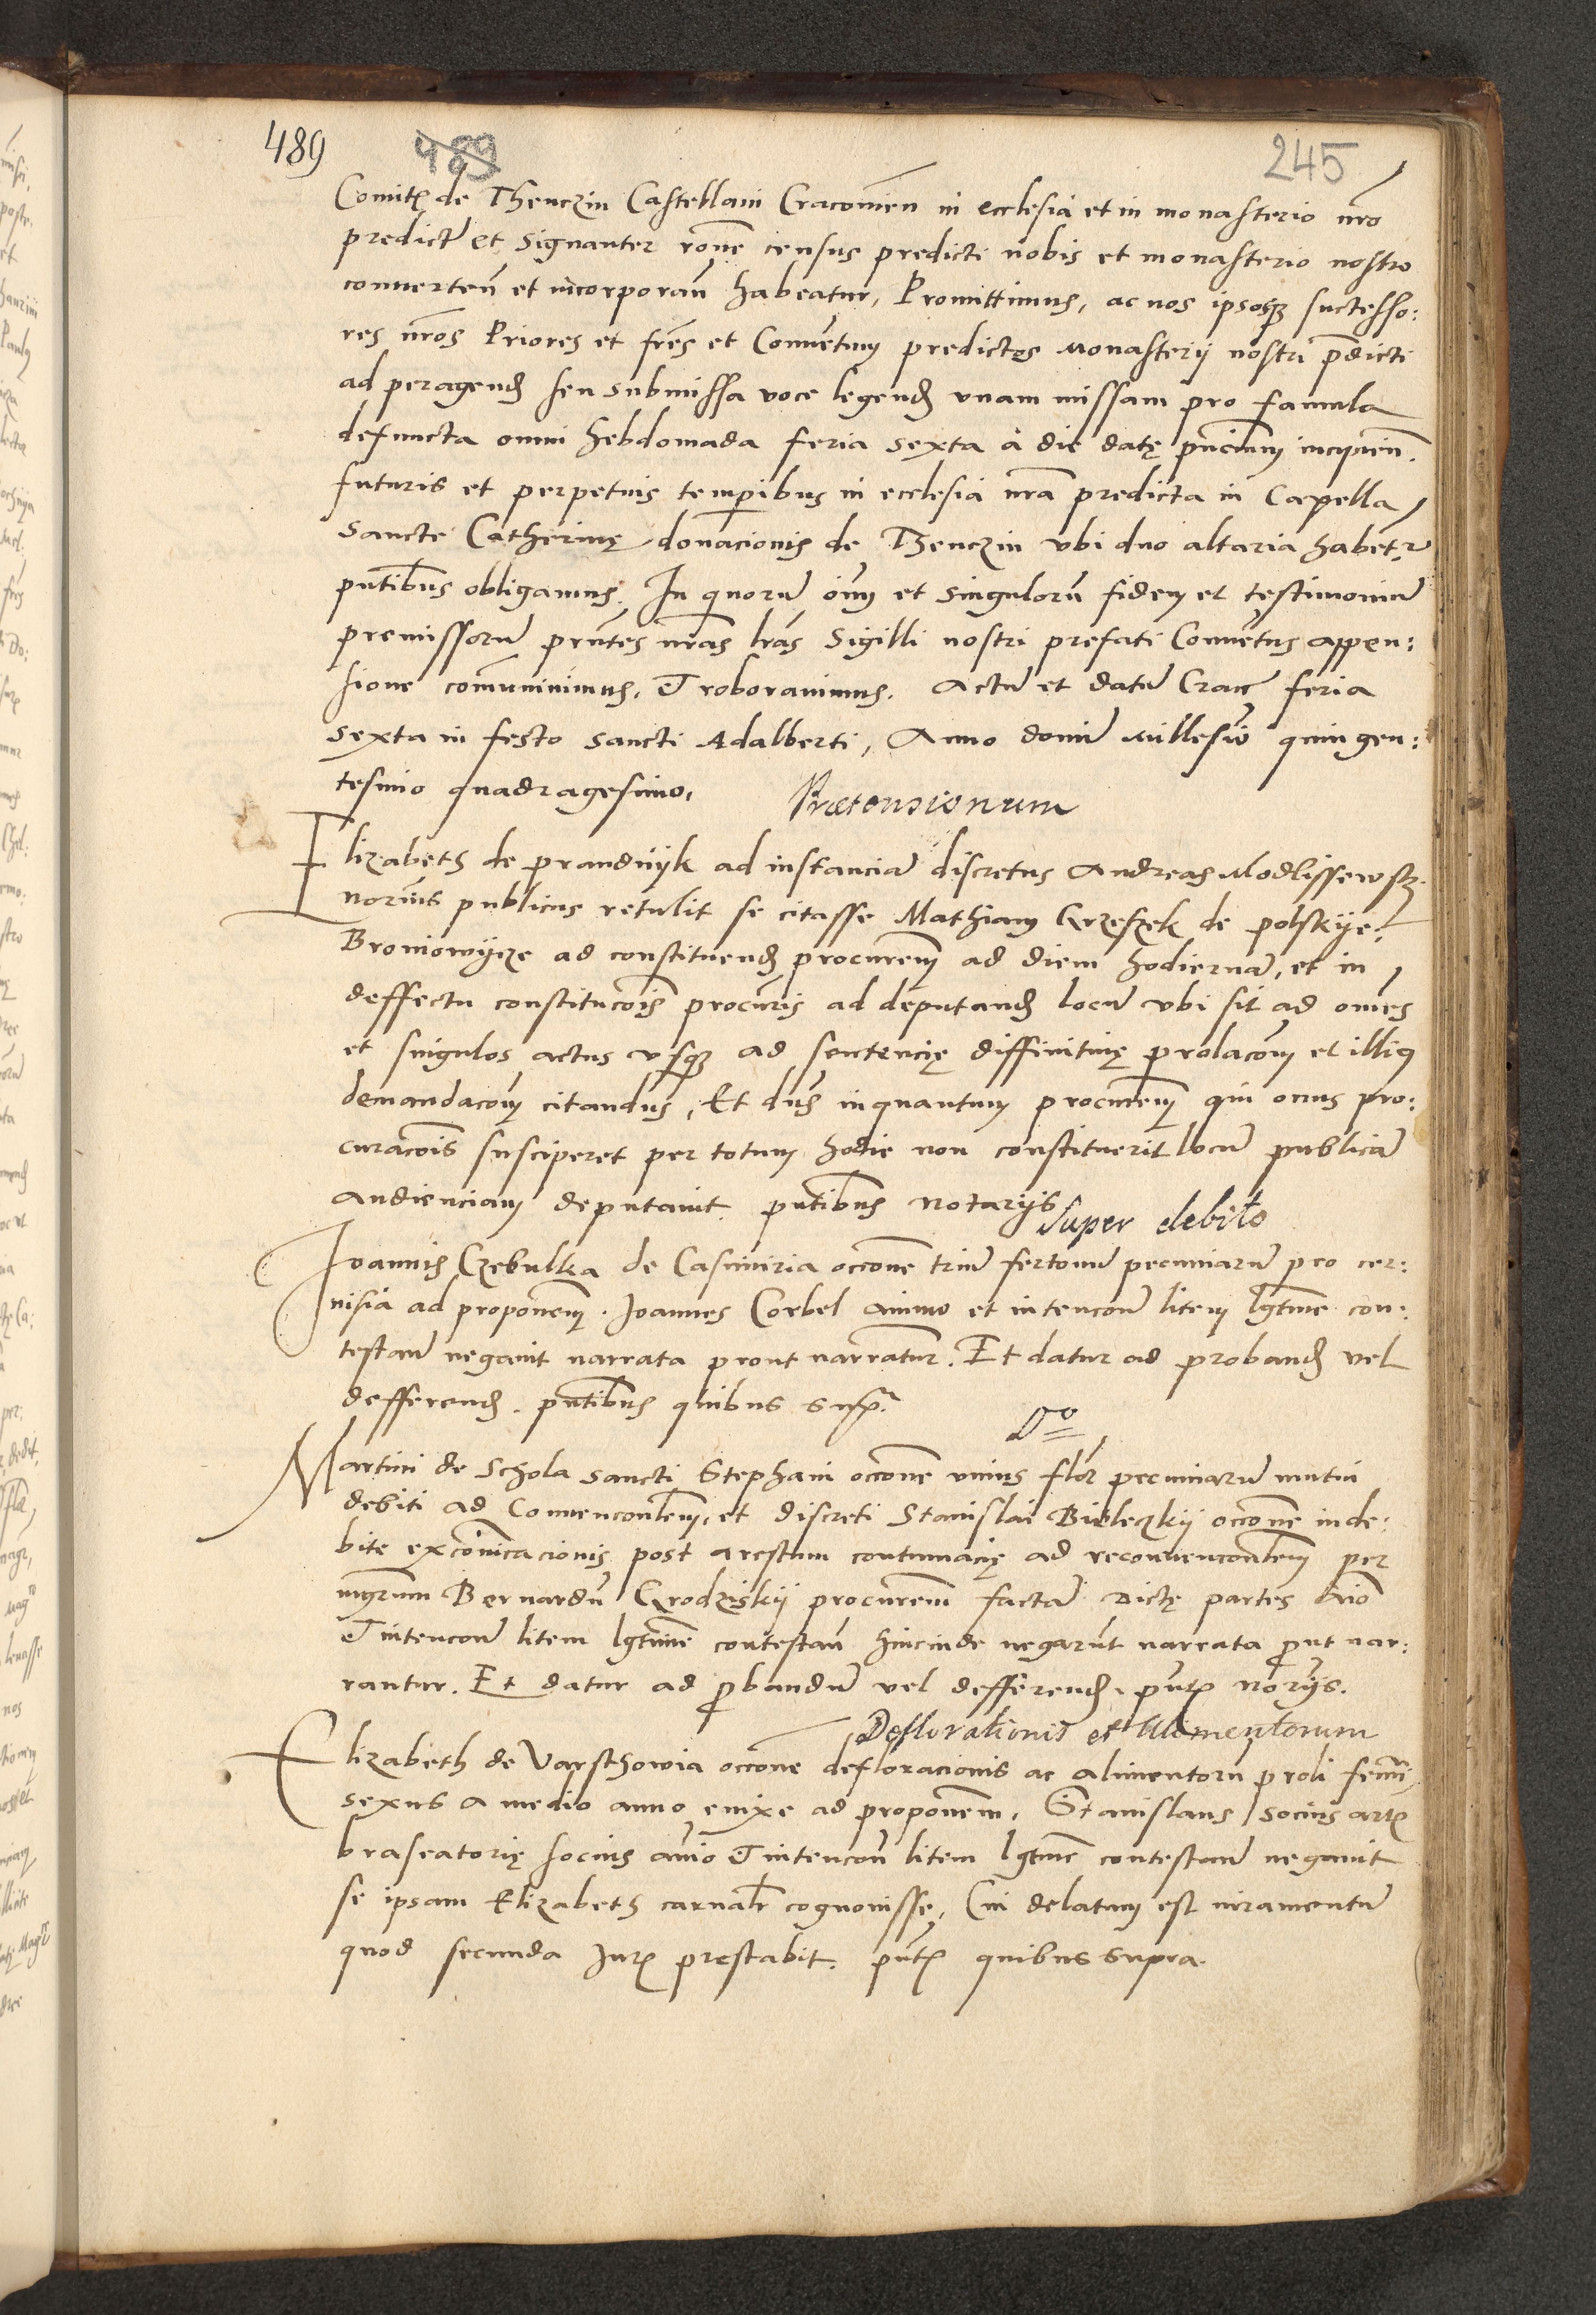 489 489 245
Comit̃ de Thenczin Castellani Cracouien̄ in ecclesia et in monasterio nr̄o
predict̄ et signanter rōne census predicti nobis et monasterio nostro
conuerten̄ et incorporan̄ habeatur, Promittimus, ac nos ipsosqȝ successo:
res nr̄os Priores et fr̄es et Conuētum predictos Monasterij nostri p̄dicti
ad peragend̄ seu submissa voce legend̄ vnam missam pro famula
defuncta omni hebdomada feria sexta à die datę pn̄cium incipien̄.
futuris et perpetuis temp̄ibus in ecclesia nr̄a predicta in Capella
Sancte Catherinę donacionis de Thenczin vbi duo altaria habet̄r
pn̄tibus obligamus. In quorū om̄ et singulorū fidem et testimoniū
premissorū pn̄tes nr̄as lr̄as Sigilli nostri prefati Conuētus appen:
sione com̄uniuimus, & roborauimus. Actū et datū Crac̄ feria
sexta in festo sancti Adalberti, Anno domī Millesīo quingen:
tesimo quadragesimo,
Prætensionum
Elizabeth de prandnijk ad instanciā discretus Andreas Modlissewsȝ.
norīus publicus retulit se citasse Mathiam Krzeszek de polskije
Broniowijcze ad constituend̄ procurem̄ ad diem hodiernā, et in
deffectu constitucōis procuris̄ ad deputand̄ locū vbi sit ad omēs
et singulos actus vsqȝ ad sentencię diffinitiuę prolacōm et illius
demandacōm citandus, Et dn̄s inquantum procurem̄ qui onus pro:
curacōis susciperet per totum hodie non constituerit locū publicā
audienciam deputauit. pn̄tibus notarijs
Super debito
Ioannis Czebulka de Casimiria occōne triū fertonū pecuniarū pro cer:
uisia ad proponem̄. Joannes Corbel animo et intencōe litem lgt̄ime con:
testan̄ negauit narrata prout narrantur. Et datur ad proband̄ vel
defferend̄. pn̄tibus quibus sup̃.
Dº
Martini de Schola sancti Stephani occōne vnius flōr pecuniarū mutui
debiti ad Conuencon̄lem, et discreti Stanislai Bieleczkij occōne inde:
bite excōicacionis post arestum contumacię ad reconuencon̄lem per
mgr̄um Bernardū Grodziskij procurem̄ factā Dictę partes aīo
& intencōe litem lgt̄ime contestan̄ hincinde negarūt narrata ꝓut nar:
rantur. Et datur ad ꝓbandū vel defferend̄. pn̄t̃ norijs.
Deflorationis et Alimentorum
Elizabeth de Varschowia occōne defloracionis ac alimentorū proli femī
sexus a medio anno enixe ad proponem̄. Stanislaus socius art̃
braseatorię socius aīo & intencōn litem lgt̄ime contestan̄ negauit
se ipsam Elizabeth carnalr̄ cognouisse, Cui delatum est iuramentū
quod secunda Jur̃ prestabit. pn̄t̃ quibus supra.